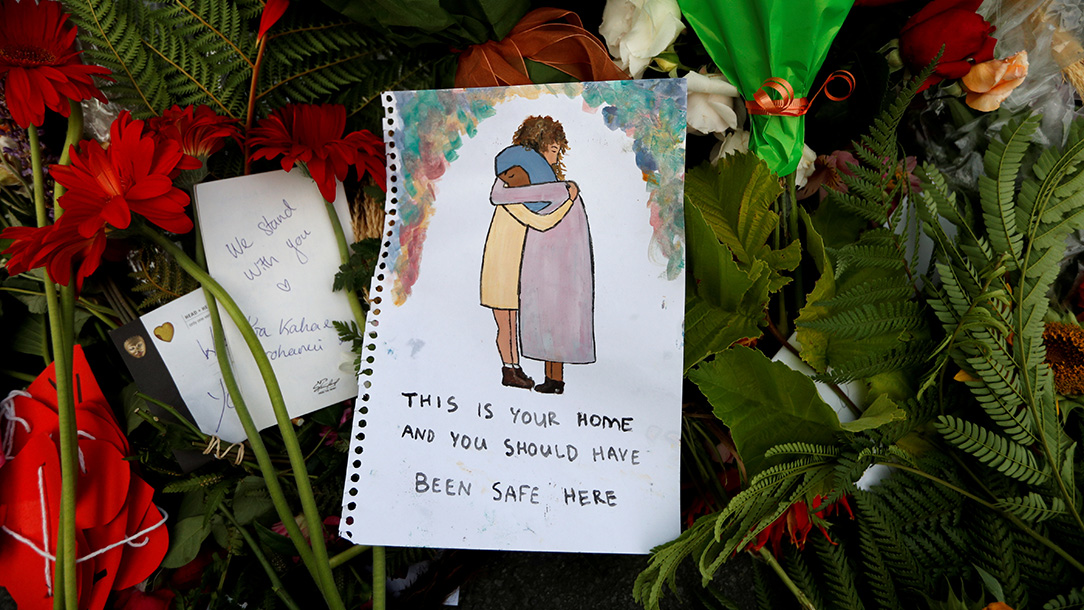 We Stand
with you
THIS IS YOUR HOME
AND YOU SHOULD HAVE
BEEN SAFE HERE